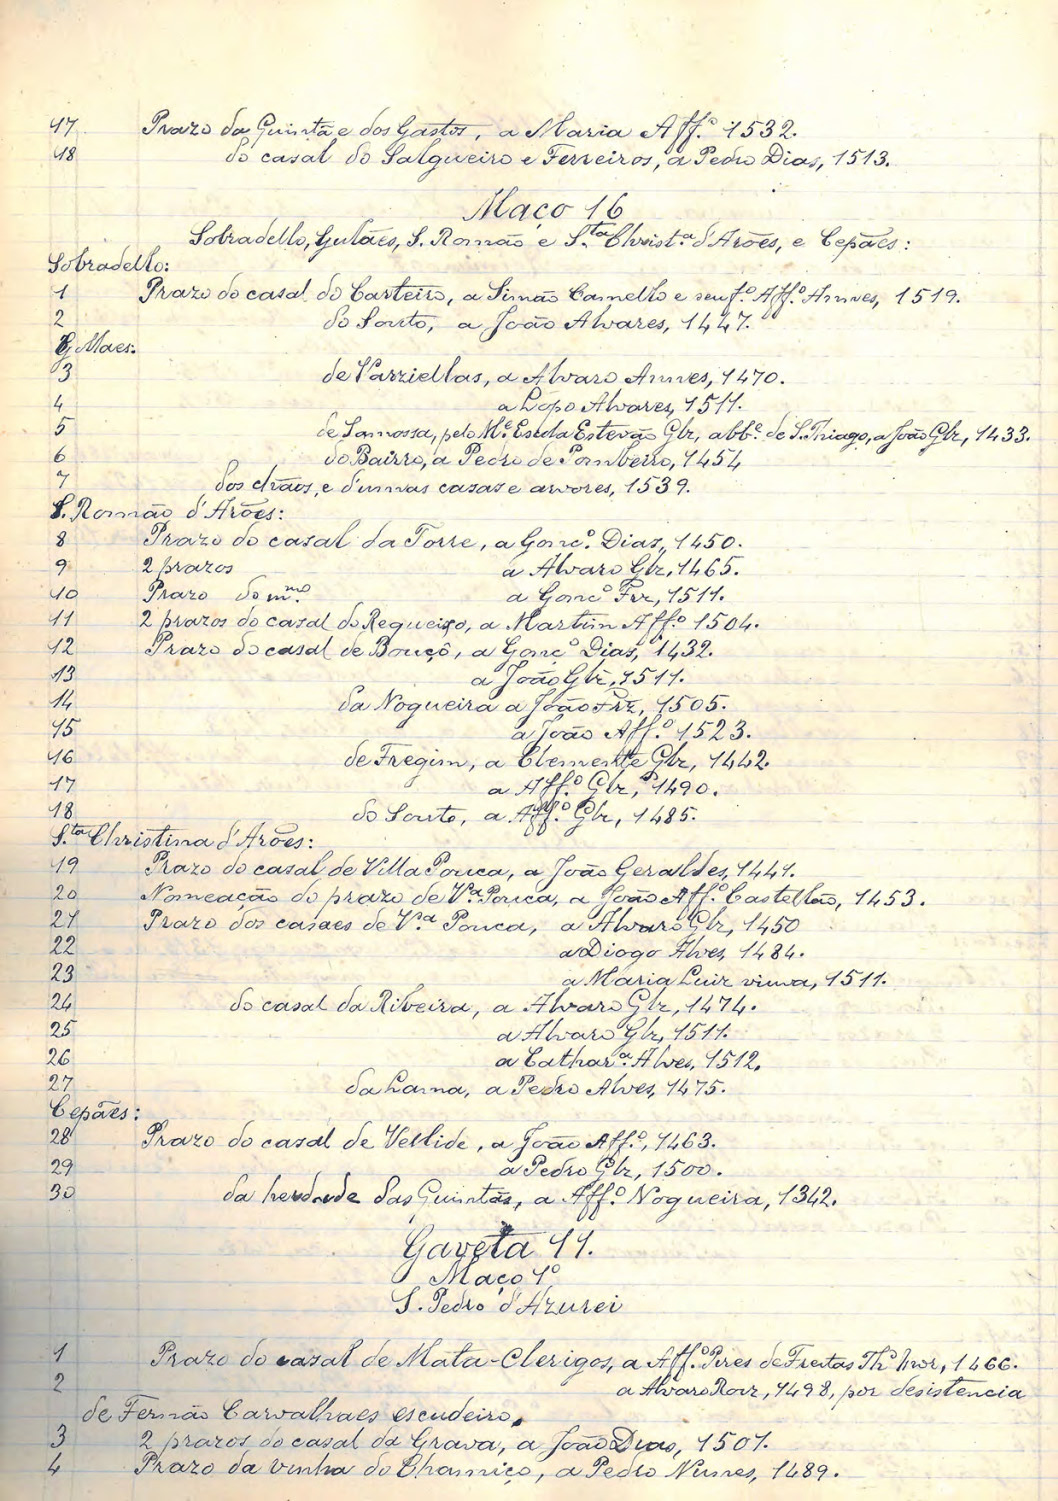 17 Prazo da Quintã e dos Gastos, a Maria Aff.º 1532.
18 do casal do Salgueiro e Ferreiros, a Pedro Dias, 1513.
Maço 16
Sobradello, Gulães, S. Romão e S.ta Christ.ª d'Arões, e Cepães:
Sobradello:
1 Prazo do casal do Carteiro, a Simão Camello e seu f.º Aff.º Annes, 1519.
2 do Souto, a João Alvares, 1447.
3 de Varziellas, a Alvaro Annes, 1470.
4 a Lopo Alvares, 1511.
5 de Lamossa, pelo M.e Escola Estevão Glz, abb.e de S. Thiago, a João Glz, 1433.
6 do Bairro, a Pedro de Pombeiro, 1454
7 dos chãos, e d'umas casas e arvores, 1539.
S. Romão d'Arões:
8 Prazo do casal da Torre, a Gonç.º Dias, 1450.
9 2 prazos a Alvaro Glz, 1465.
10 Prazo do m.mo a Gonç.º Frz, 1511.
11 2 prazos do casal do Regueiro, a Martim Aff.º 1504.
12 Prazo do casal de Bouçô, a Gonç.º Dias, 1432.
13 a João Glz, 1511.
14 da Nogueira a João Frz, 1505.
15 a João Aff.º 1523.
16 de Fregim, a Clemente Glz, 1442.
17 a Aff.º Glz, 1490.
18 do Souto, a Aff.º Glz, 1485.
S.ta Christina d'Arões:
19 Prazo do casal de Villa Pouca, a João Geraldes, 1441.
20 Nomeação do prazo de V.ª Pouca, a João Aff.º Castellão, 1453.
21 Prazo dos casaes de V.ª Pouca, a Alvaro Glz, 1450
22 a Diogo Alves, 1484.
23 a Maria Luiz viuva, 1511.
24 do casal da Ribeira, a Alvaro Glz, 1474.
25 a Alvaro Glz, 1511.
26 a Cathar.ª Alves, 1512.
27 da Lama, a Pedro Alves, 1475.
Cepães:
28 Prazo do casal de Vellide, a João Aff.º, 1463.
29 a Pedro Glz, 1500.
30 da herdade das Quintãs, a Aff.º Nogueira, 1342.
Gaveta 11.
Maço 1º
S. Pedro d'Azurei
1 Prazo do casal de Mata-Clerigos, a Aff.º Pires de Freitas Th.º mor, 1466.
2 a Alvaro Roiz, 1498, por desistencia
de Fernão Carvalhaes escudeiro.
3 2 prazos do casal da Grava, a João Dias, 1501.
4 Prazo da vinha do Chamiço, a Pedro Nunes, 1489.